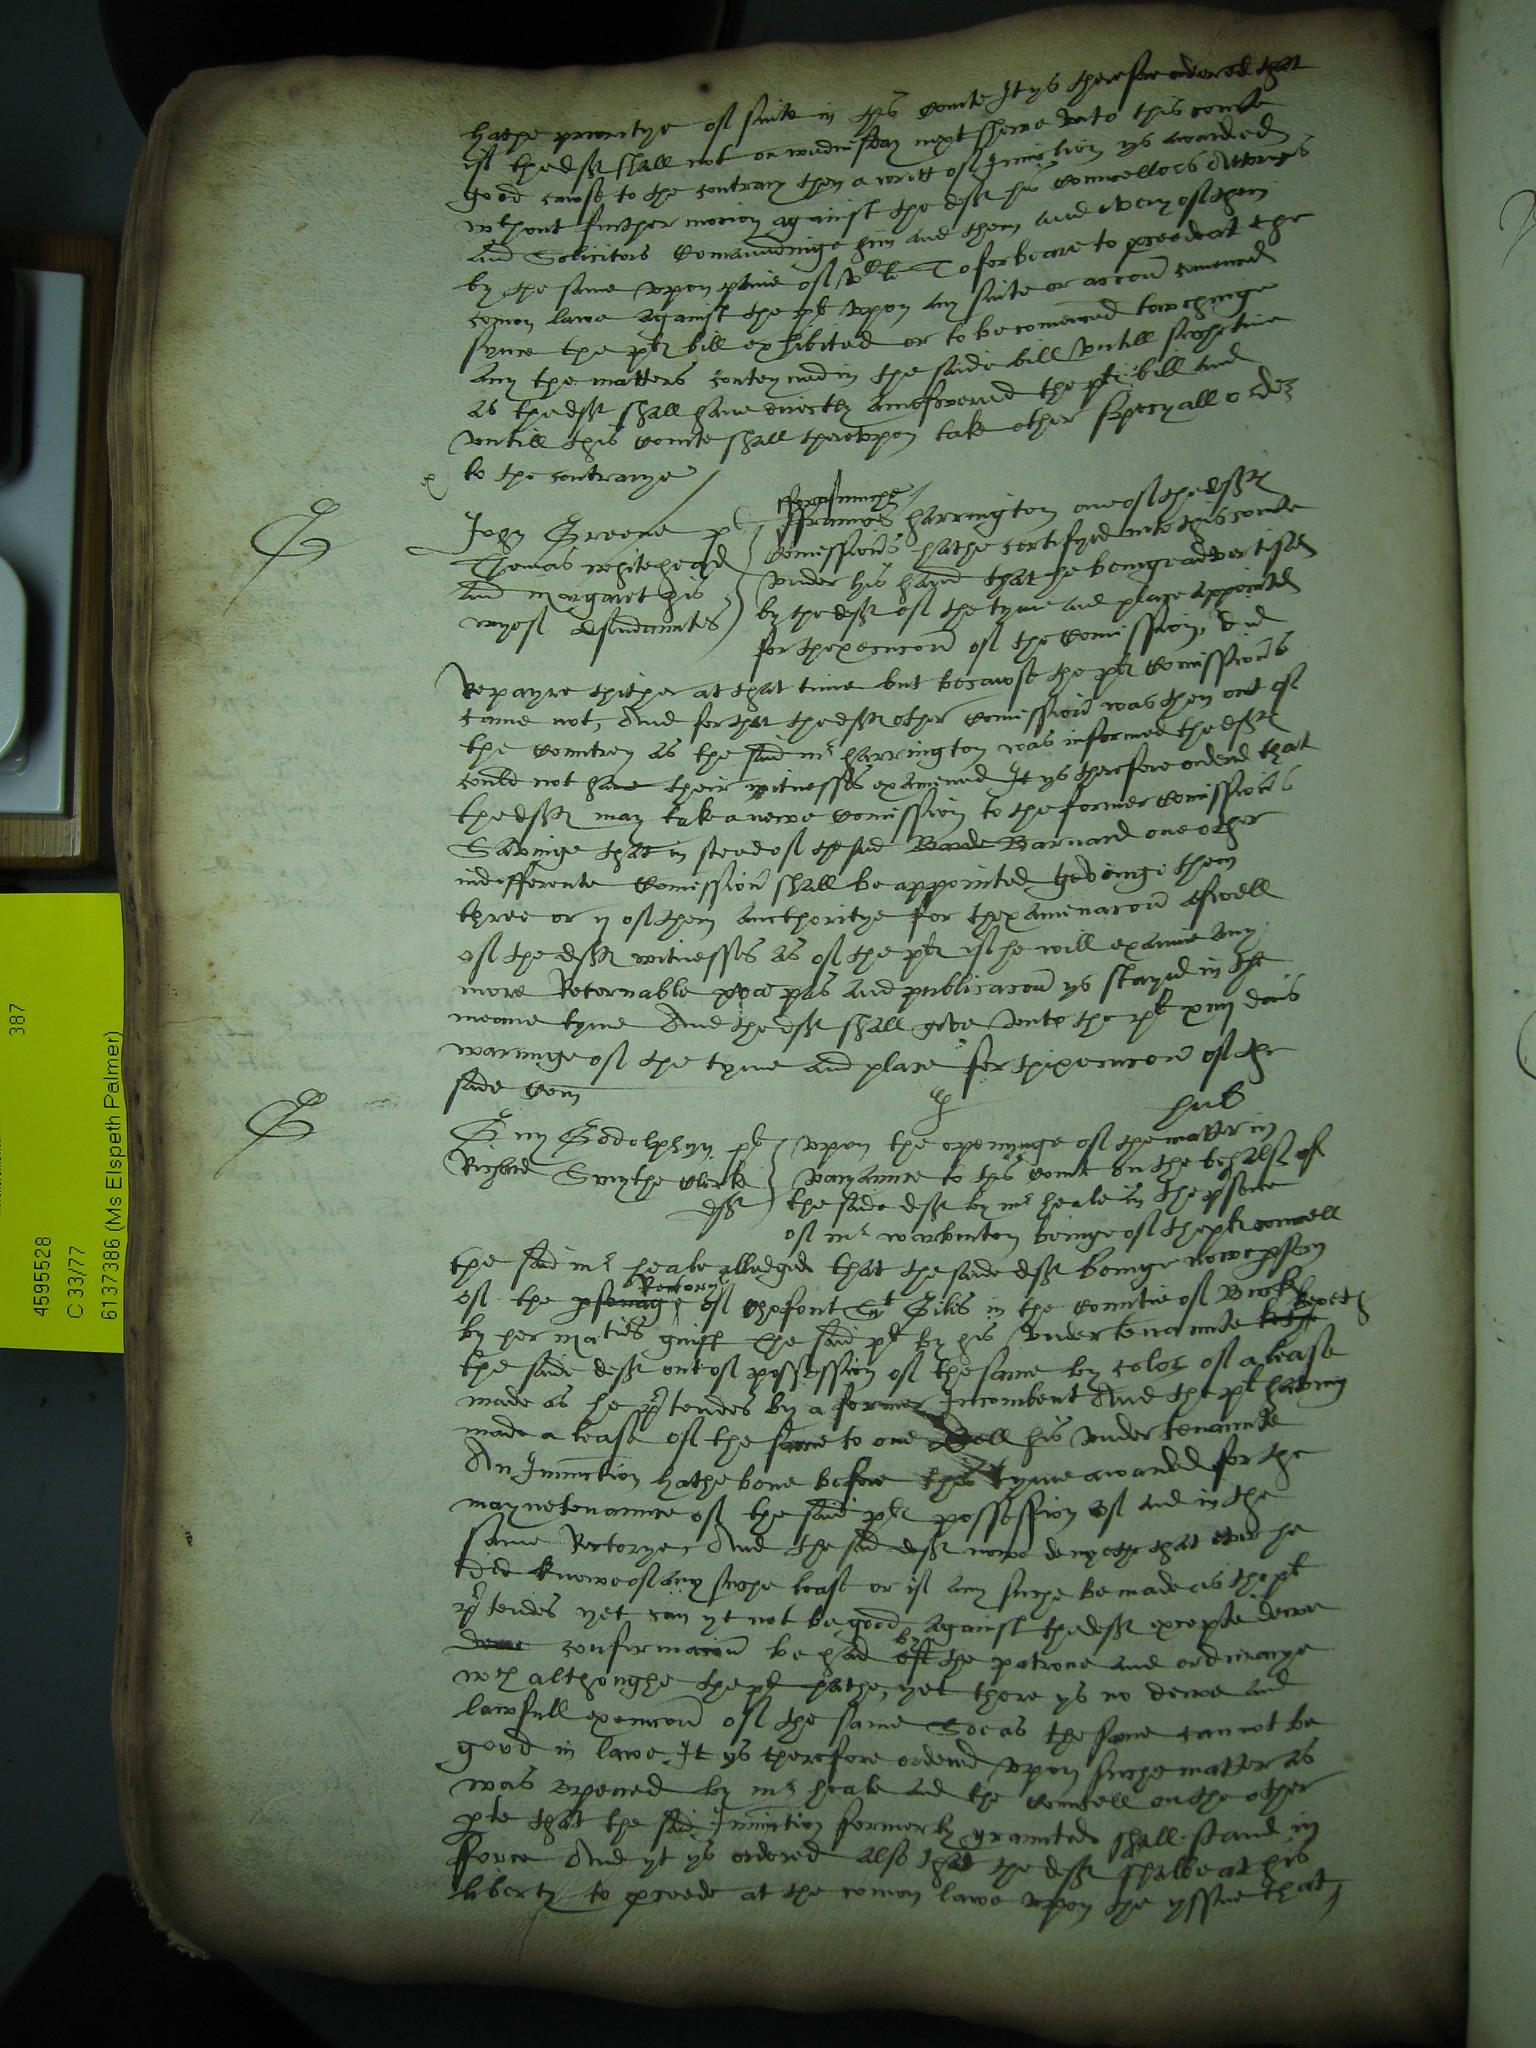 hathe prioritye of suite in this Courte It ys therefore ordered that
if the deft shall not on wednesday next shewe unto this courte
good cawse to the contrary then a writt of Iniunction ys awarded
wthout further mocion against the deft his Councellors Attorneys
and Solicitors Comaundinge him and them and every of them
by the same upon paine of To forbeare to proceede at the
comon lawe against the plt upon any suite or accon comenced
synce the plts bill exhibited or to be comenced towchinge
any the matters conteyned in the saide bill untill suche time
as the deft shall have directly aunswered the plts bill and
untill this Courte shall thereupon take other specyall order
to the contrarye
John Greene plt
Thomas whitehead
and margaret his
wyef defendauntes
fforasmuche
ffrauncis harrington one of the defts
Comissioners hathe certifyed into this courte
under his hand that he beinge advertised
by the deft of the tyme and place appointed
for thexecucon of the Comission, did
Repayre thither at that time but becawse the plts Comissioners
came not, And for that the defts other Comissioner was then out of
the Countrey as the said mr harrington was informed the defts
could not have their witnesses examined It ys therefore ordered that
the defts may take a newe Comission to the former Comissioners
Savinge that in steed of the said Barde Barnard one other
indifferente Comissioner shall be appointed gevinge them
three or ij of them aucthoritye for thexaminacon aswell
of the defts witnesses as of the plts if he will examine any
more Retornable pas and publicacon ys stayed in the
meane tyme And the deft shall geve unto the plt xiiij dais
warninge of the tyme and place for thexecucon of the
saide Com
hub
Guy Godolphyn plt
Richard Smythe Clerke
deft
upon the openynge of the matter in
varyaunce to this Court on the behalf of
the saide deft by mr heale in the psence
of mr warbirton beinge of the plts councell
the said mr heale alledged that the saide deft beinge nowe pson
of the psonage Rectory of Chalfont St Giles in the Countie of Buck
by her maties guift The said plt by his undertenaunte kepeth
the saide deft out of possession of the same by color of a lease
made as he ptendes by a former Incombent And the plt having
made a lease of the same to one Bell his undertenaunte
An Iniunction hathe bene before this tyme awarded for the
mayntenaunce of the said plts possession of and in the
same Rectorye, And the said deft nowe denyethe that ever he
did knowe of any suche lease or if any suche be made as the plt
ptendes yet can yt not be good against the deft excepte dewe
dewe confirmacon be had of by the patrone and ordinarye
wch althoughe the plt hathe, yet there ys no dewe and
lawfull execucon of the same Soe as the same can not be
good in lawe It ys therefore ordered upon suche matter as
was opened by mr heale and the Councell on the other
pte that the said Iniunction formerly graunted shall stand in
fforce And yt ys ordered also that the deft shalbe at his
liberty to proceede at the comon lawe upon the yssue that
387
4595528
C 33/77
6137386 (Ms Elspeth Palmer)